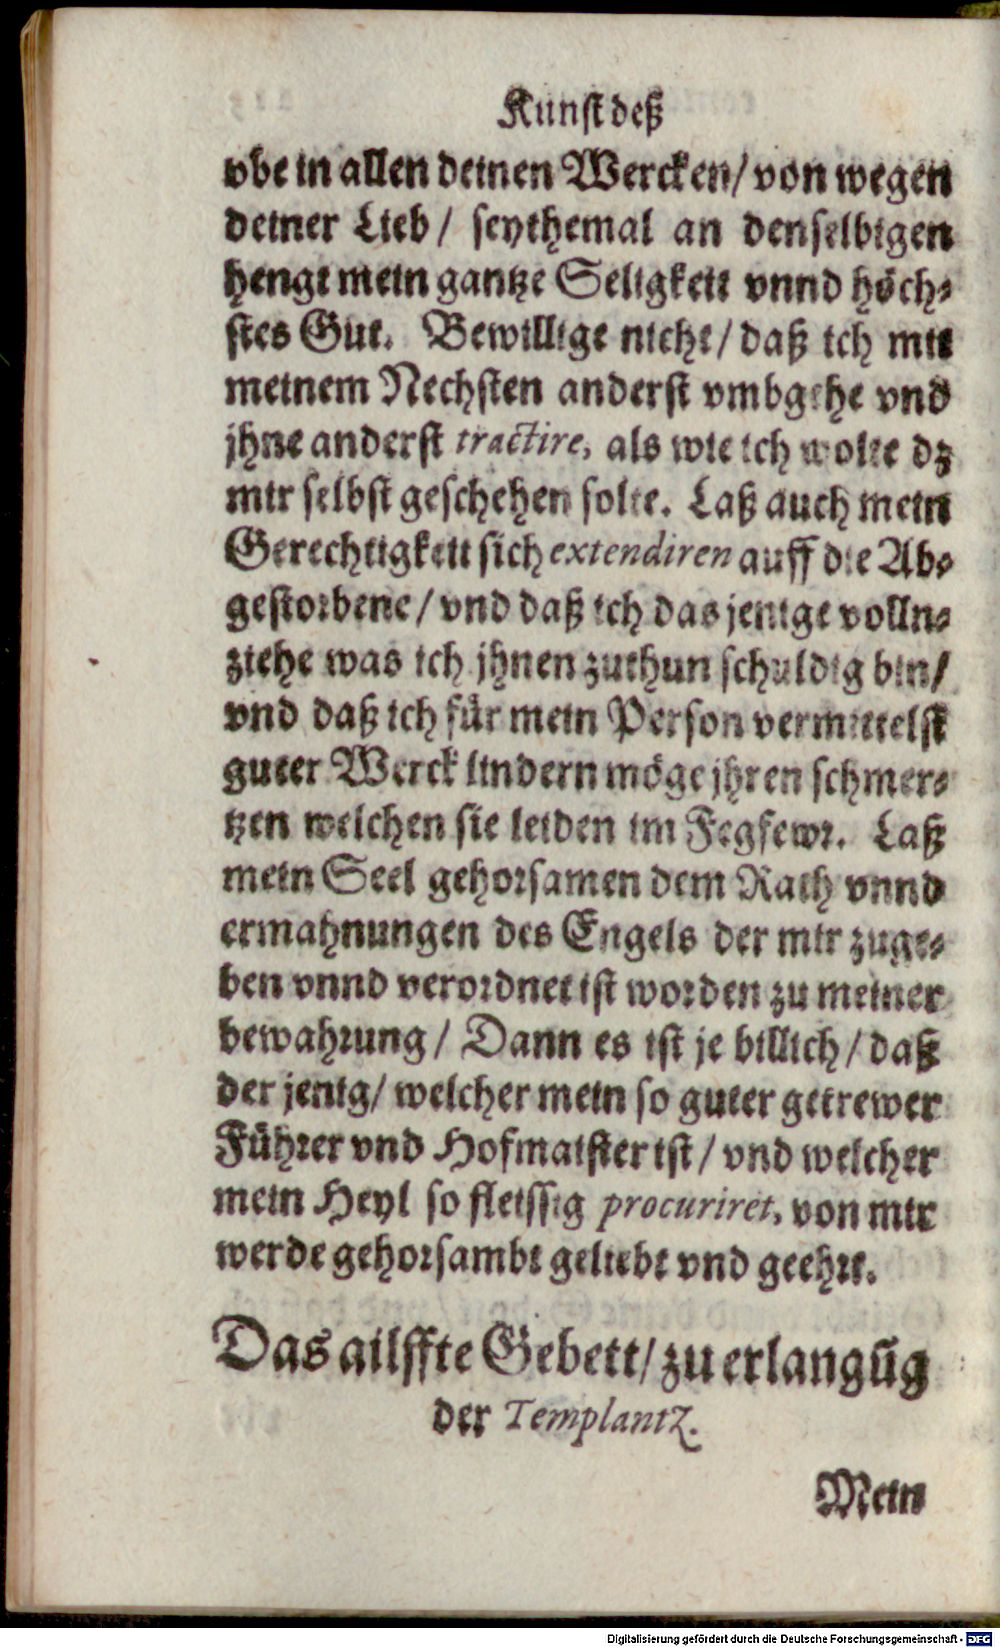 Kunst deß
vbe in allen deinen Wercken/ von wegen
deiner Lieb/ seythemal an denselbigen
hengt mein gantze Seligkeit vnnd höch-
stes Gut. Bewillige nicht/ daß ich mit
meinem Nechsten anderst vmbgehe vnd
jhne anderst tractire, als wie ich wolte dz
mir selbst geschehen solte. Laß auch mein
Gerechtigkeit sich extendiren auff die Ab-
gestorbene/ vnd daß ich das jenige volln-
ziehe was ich jhnen zuthun schuldig bin/
vnd daß ich für mein Person vermittelst
guter Werck lindern möge jhren schmer-
tzen welchen sie leiden im Fegfewr. Laß
mein Seel gehorsamen dem Rath vnnd
ermahnungen des Engels der mir zuge-
ben vnnd verordnet ist worden zu meiner
bewahrung/ Dann es ist je billich/ daß
der jenig/ welcher mein so guter getrewer
Führer vnd Hofmaister ist/ vnd welcher
mein Heyl so fleissig procuriret, von mir
werde gehorsambt geliebt vnd geehrt.
Das ailffte Gebett/ zu erlangũg
der Templantz.
Mein
Digitalisierung gefördert durch die Deutsche Forschungsgemeinschaft - DFG